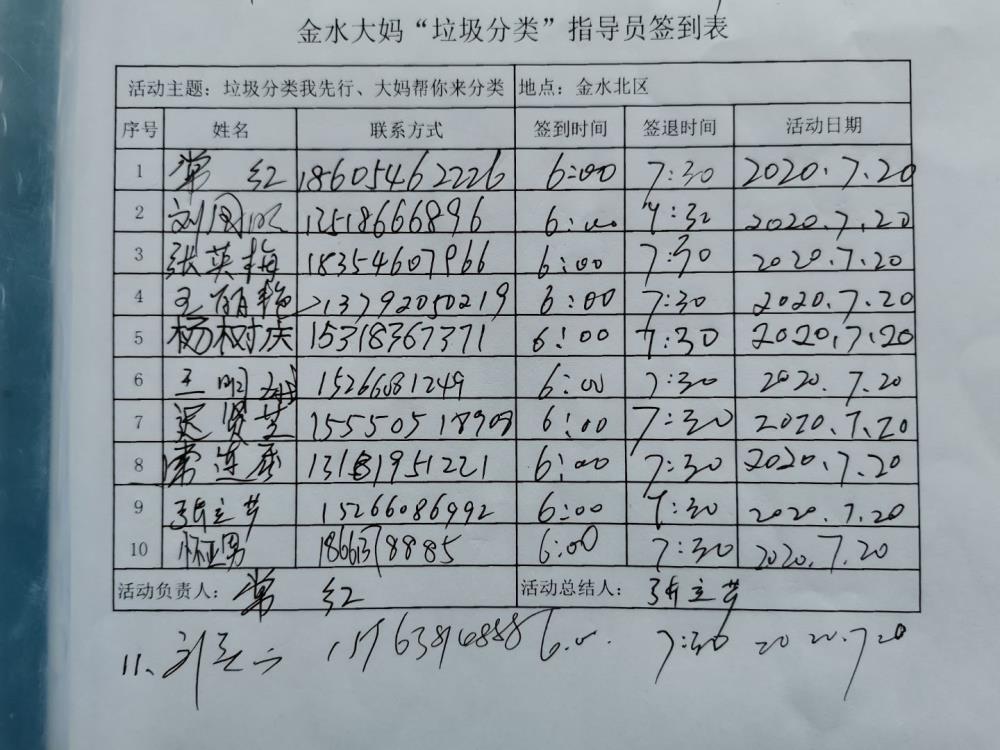 金水大妈“垃圾分类”指导员签到表
活动主题：垃圾分类我先行、大妈帮你来分类 地点：金水北区
序号 姓名 联系方式 签到时间 签退时间 活动日期
1 常红 18605462226 6:00 7:30 2020.7.20
2 刘国 13518666896 6:00 7:30 2020.7.20
3 张英梅 18354607966 6:00 7:30 2020.7.20
4 王丽艳 13792050219 6:00 7:30 2020.7.20
5 杨树庆 15318367371 6:00 7:30 2020.7.20
6 王 15266081249 6:00 7:30 2020.7.20
7 迟贤芝 6:00 7:30 2020.7.20
8 常连库 13181951221 6:00 7:30 2020.7.20
9 张立芳 15266086992 6:00 7:30 2020.7.20
10 怀亚男 18663778885 6:00 7:30 2020.7.20
活动负责人：常红 活动总结人：张立芳
11、 6:00 7:30 2020.7.20